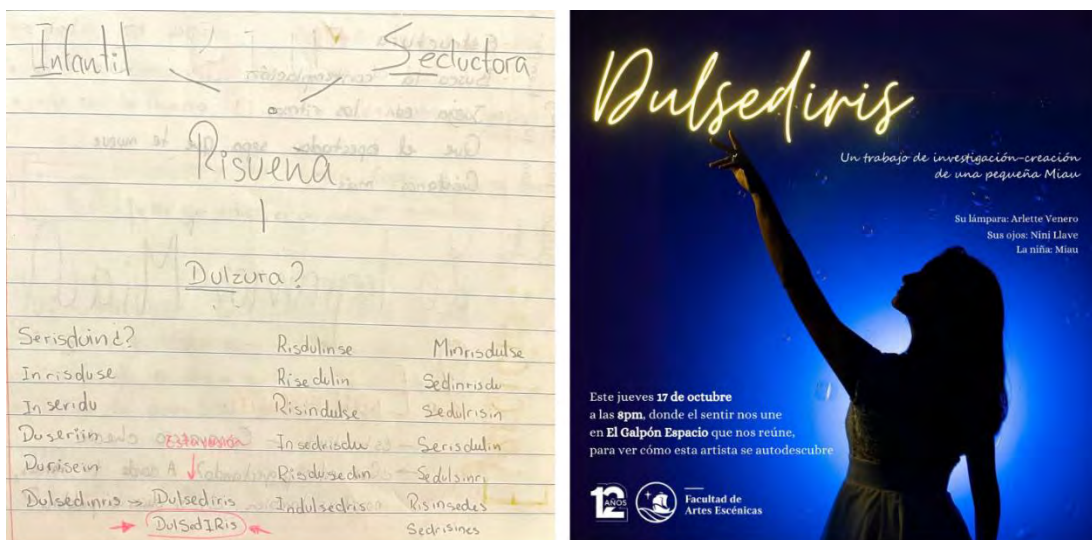 Infantil Seductora
Risuena
Dulzura?
Serisduin¿? Risdulinse Minrisdulse
Inrisduse Risedulin Sedinrisdu
Inseridu Risindulse Sedulrisin
Esta versión Insedrisdu Serisdulin
Durisein Risdusedin Sedulsinri
Dulsedinris Dulsediris Indulsedris Risinsedes
DulSedIRis Sedrisines
Dulsediris
Un trabajo de investigación-creación
de una pequeña Miau
Su lámpara: Arlette Venero
Sus ojos: Nini Llave
La niña: Miau
Este jueves 17 de octubre
a las 8pm, donde el sentir nos une
en El Galpón Espacio que nos reúne,
para ver cómo esta artista se autodescubre
12 AÑOS
Facultad de
Artes Escénicas